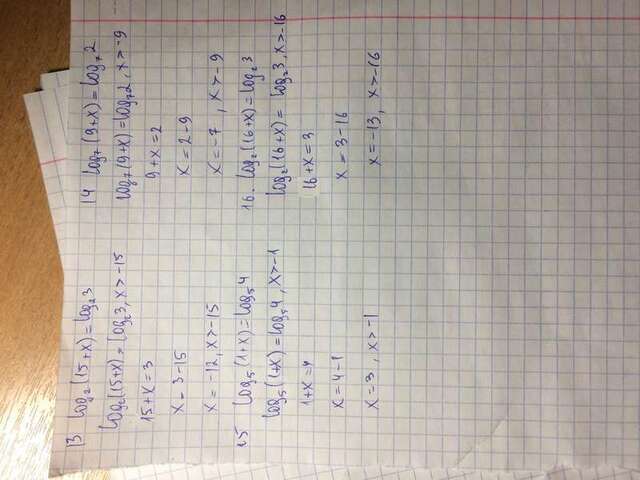 13 log₂(15+x)=log₂3
log₂(15+x)=log₂3, x>-15
15+x=3
x=3-15
x=-12, x>-15
14 log₇(9+x)=log₇2
log₇(9+x)=log₇2, x>-9
9+x=2
x=2-9
x=-7, x>-9
15 log₅(1+x)=log₅4
log₅(1+x)=log₅4, x>-1
1+x=4
x=4-1
x=3, x>-1
16. log₂(16+x)=log₂3
log₂(16+x)=log₂3, x>-16
16+x=3
x=3-16
x=-13, x>-16